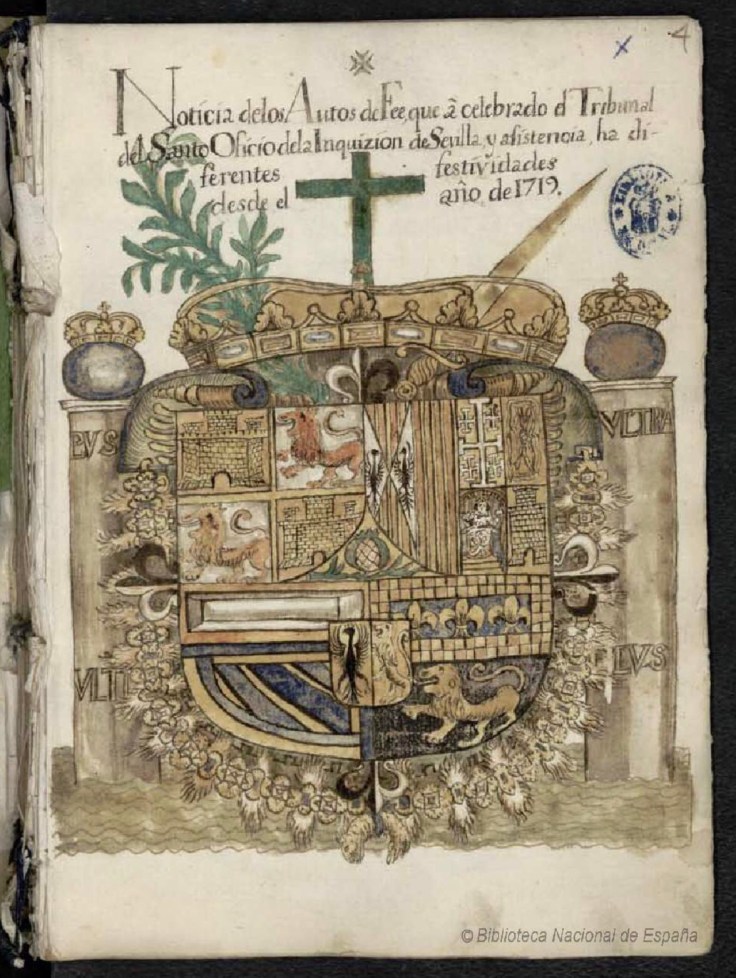 4
Noticia delos Autos de Fee, que â celebrado el Tribunal
del Santo Oficio dela Inquizion de Sevilla, y asistencia, ha di-
ferentes festividades
desde el año de 1719.
PVS VLTRA
VLTR PLVS
© Biblioteca Nacional de España